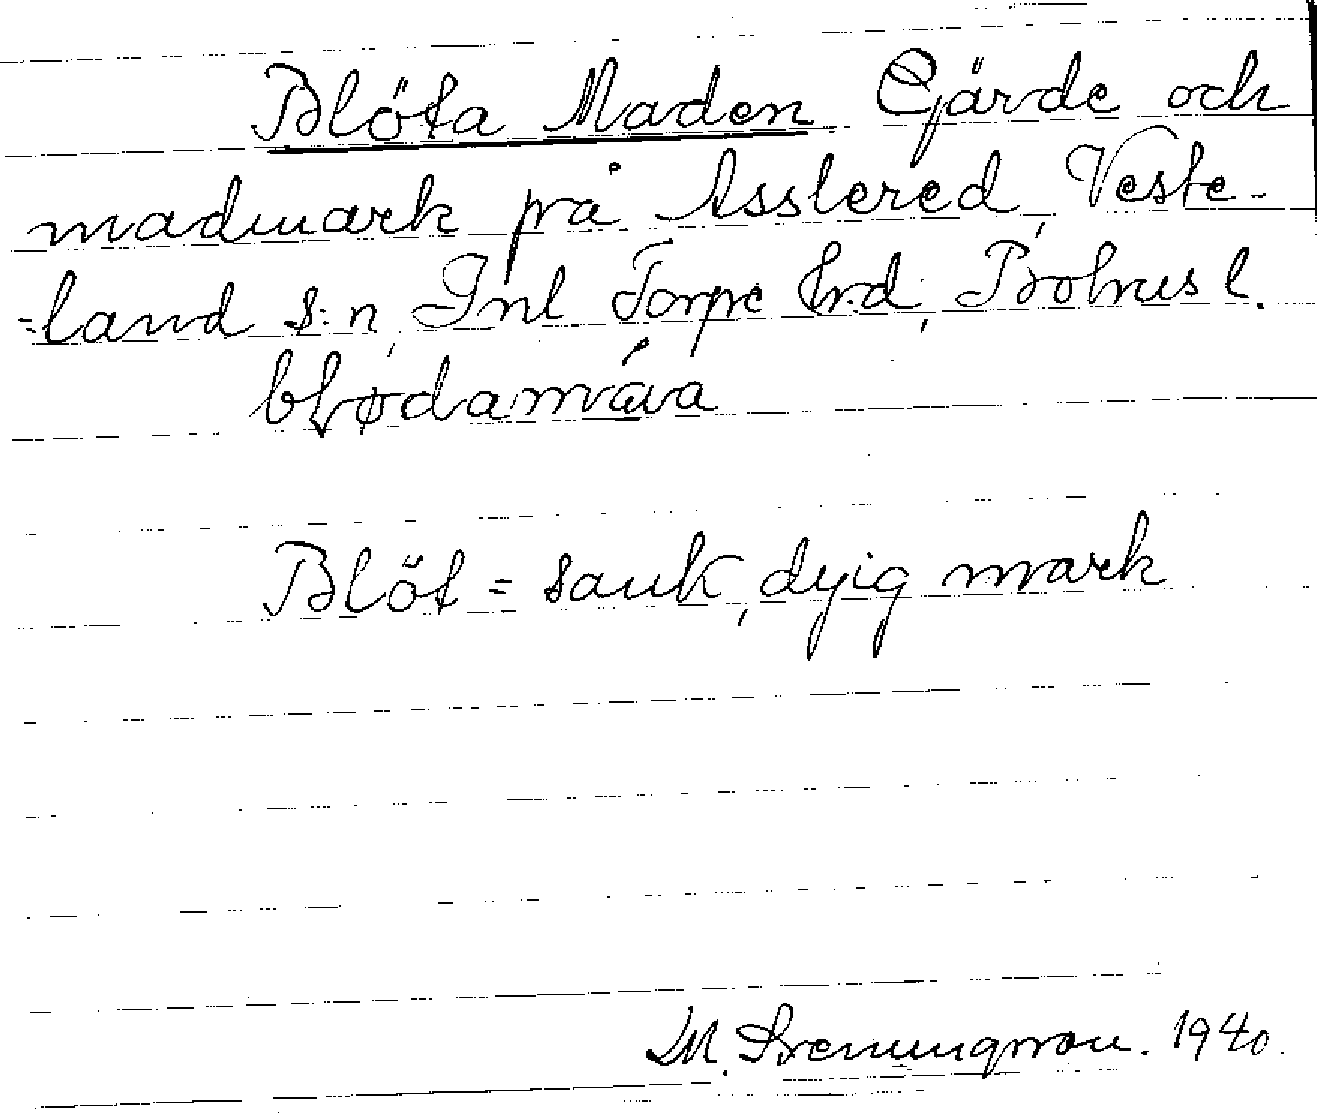 Blöta Maden Gärde och
madmark på Asslered, Veste-
=land s:n, Inl Torpe hrd, Bohus l.
blødamáva
Blöt = sank, dyig mark
M. Svenungsson. 1940.